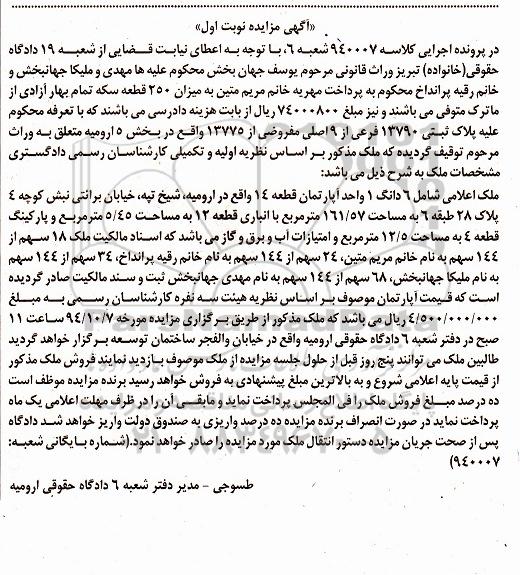 «آگهی مزایده نوبت اول»
در پرونده اجرایی کلاسه ۹۴۰۰۰۷ شعبه ۶، با توجه به اعطای نیابت قضایی از شعبه ۱۹ دادگاه
حقوقی(خانواده) تبریز وراث قانونی مرحوم یوسف جهان بخش محکوم علیه ها مهدی و ملیکا جهانبخش و
خانم رقیه پرانداخ محکوم به پرداخت مهریه خانم مریم متین به میزان ۲۵۰ قطعه سکه تمام بهار آزادی از
ماترک متوفی می باشند و نیز مبلغ ۷۴۰۰۰۸۰۰ ریال از بابت هزینه دادرسی می باشند که با تعرفه محکوم
علیه پلاک ثبتی ۱۳۷۹۰ فرعی از ۹ اصلی مفروضی از ۱۳۷۷۵ واقع در بخش ۵ ارومیه متعلق به وراث
مرحوم توقیف گردیده که ملک مذکور بر اساس نظریه اولیه و تکمیلی کارشناسان رسمی دادگستری
مشخصات ملک به شرح ذیل می باشد:
ملک اعلامی شامل ۶ دانگ ۱ واحد آپارتمان قطعه ۱۴ واقع در ارومیه، شیخ تپه، خیابان برائتی نبش کوچه ۴
پلاک ۲۸ طبقه ۶ به مساحت ۱۶۱/۵۷ مترمربع با انباری قطعه ۱۲ به مساحت ۵/۴۵ مترمربع و پارکینگ
قطعه ۴ به مساحت ۱۲/۵ مترمربع و امتیازات آب و برق و گاز می باشد که اسناد مالکیت ملک ۱۸ سهم از
۱۴۴ سهم به نام خانم مریم متین، ۲۴ سهم از ۱۴۴ سهم به نام خانم رقیه پرانداخ، ۳۴ سهم از ۱۴۴ سهم
به نام ملیکا جهانبخش، ۶۸ سهم از ۱۴۴ سهم به نام مهدی جهانبخش ثبت و سند مالکیت صادر گردیده
است که قیمت آپارتمان موصوف بر اساس نظریه هیئت سه نفره کارشناسان رسمی به مبلغ
۴/۵۰۰/۰۰۰/۰۰۰ ریال می باشد که ملک مذکور از طریق برگزاری مزایده مورخه ۹۴/۱۰/۷ ساعت ۱۱
صبح در دفتر شعبه ۶ دادگاه حقوقی ارومیه واقع در خیابان والفجر ساختمان توسعه برگزار خواهد گردید
طالبین ملک می توانند پنج روز قبل از حلول جلسه مزایده از ملک موصوف بازدید نمایند فروش ملک مذکور
از قیمت پایه اعلامی شروع و به بالاترین مبلغ پیشنهادی به فروش خواهد رسید برنده مزایده موظف است
ده درصد مبلغ فروش ملک را فی المجلس پرداخت نماید و مابقی آن را در ظرف مهلت اعلامی یک ماه
پرداخت نماید در صورت انصراف برنده مزایده ده درصد واریزی به صندوق دولت واریز خواهد شد دادگاه
پس از صحت جریان مزایده دستور انتقال ملک مورد مزایده را صادر خواهد نمود.(شماره بایگانی شعبه:
۹۴۰۰۰۷)
طسوجی - مدیر دفتر شعبه ۶ دادگاه حقوقی ارومیه